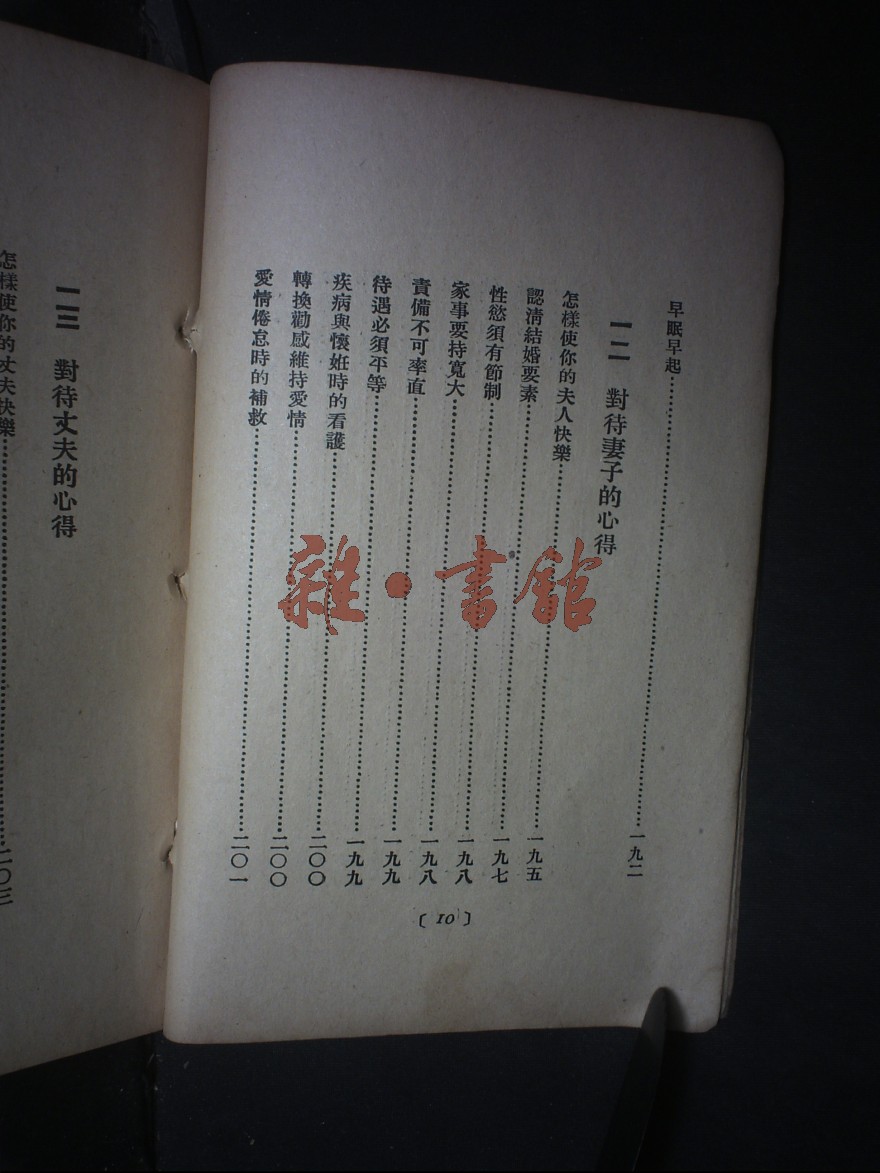 早眠早起……………………一九二
一二 對待妻子的心得
怎樣使你的夫人快樂……………………一九五
認清結婚要素……………………一九七
性慾須有節制……………………一九八
家事要持寬大……………………一九八
責備不可率直……………………一九九
待遇必須平等……………………一九九
疾病與懷姙時的看護……………………二〇〇
轉換勸感維持愛情……………………二〇〇
愛情倦怠時的補救……………………二〇一
〔10〕
一三 對待丈夫的心得
怎樣使你的丈夫快樂……………………二〇三
雜·書館